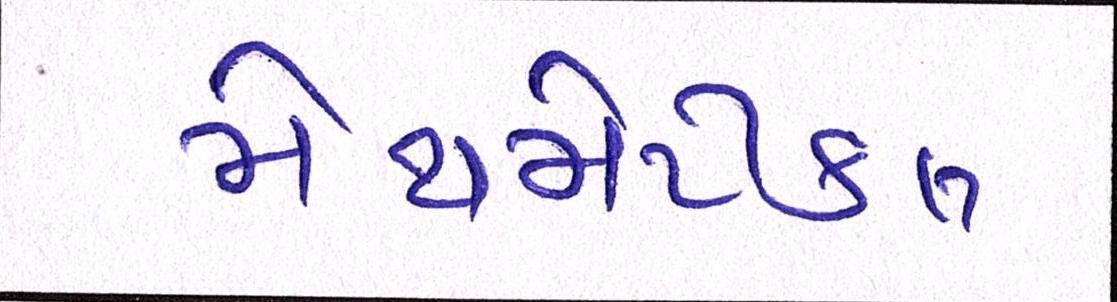 મેથમેટીકલ